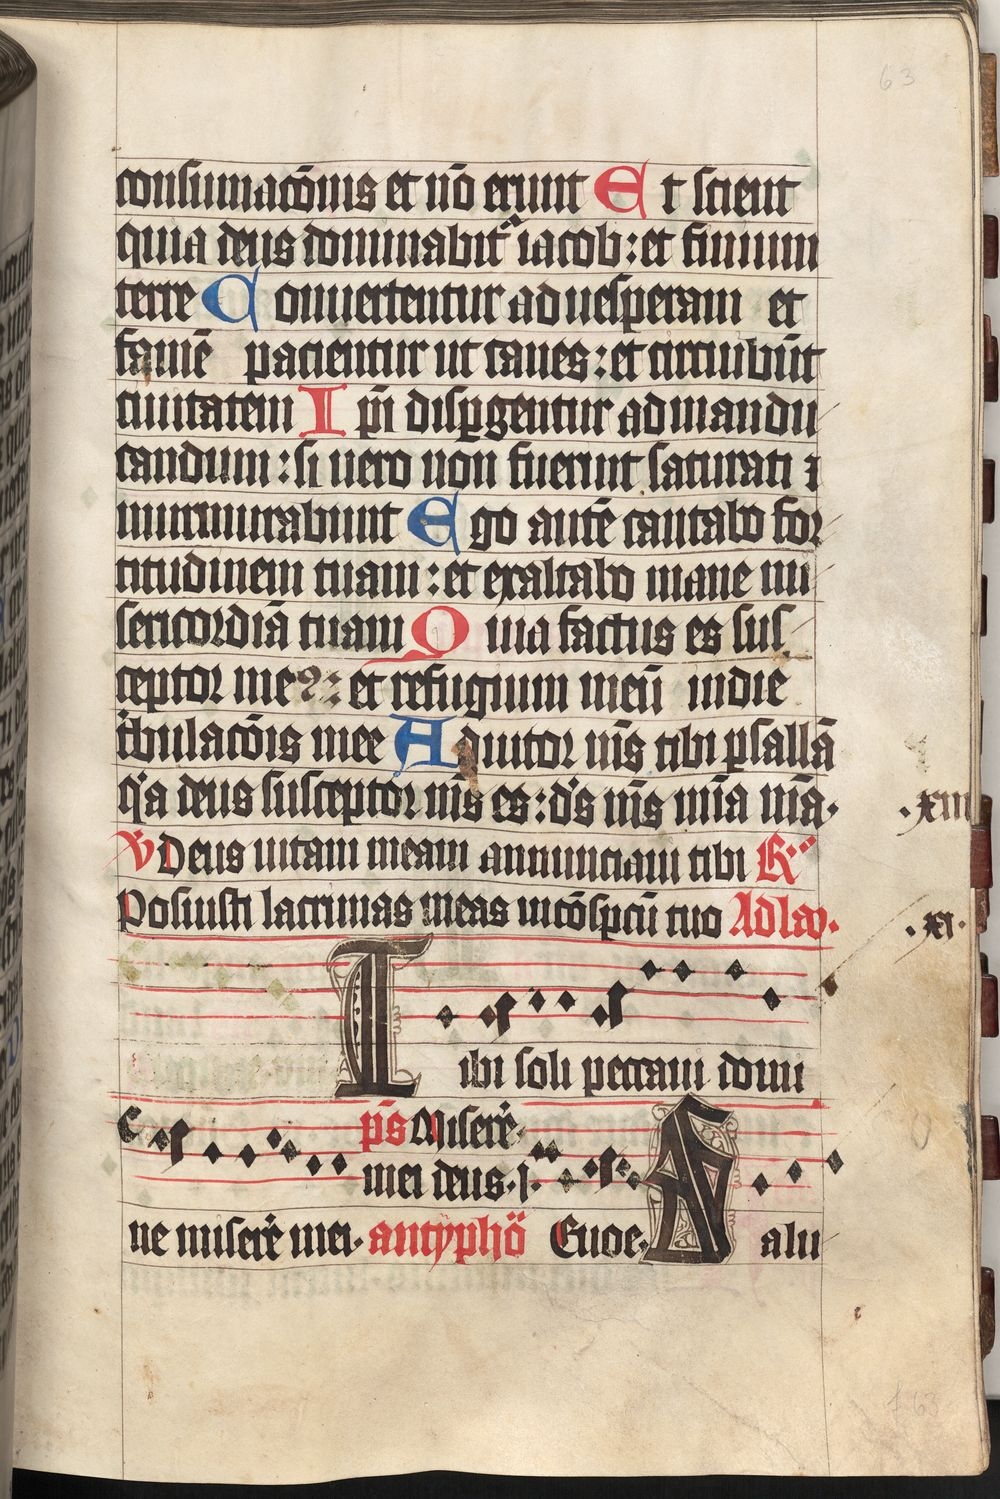 63
consumacōnis et nō erunt Et scient
quia deus dominabit᷑ iacob : et finium
terre Conuertentur ad uesperam et
famē pacientur ut canes : et circuibūt
ciuitatem Ip̄i disp̱gentur ad mandu
candum : si uero non fuerint saturati ⁊
murmurabunt Ego autē cantabo for
titudinem tuam : et exaltabo mane mi
sericordiā tuam Quia factus es sus
ceptor me⁹ : et refugium meū in die
t̾bulacōis mee Adiutor m̄s tibi psallā
qͥa deus susceptor m̄s es : d's m̄s mīa mīa .
.xiii
V Deus uitam meam annunciaui tibi R
Posuisti lacrimas meas in cōspctū tuo Ad lav.
.xi.
Tibi soli peccaui domi
p̄s Miserē
mei deus .i.
ne miserē mei . antyphō Euoe . Salu
f 63